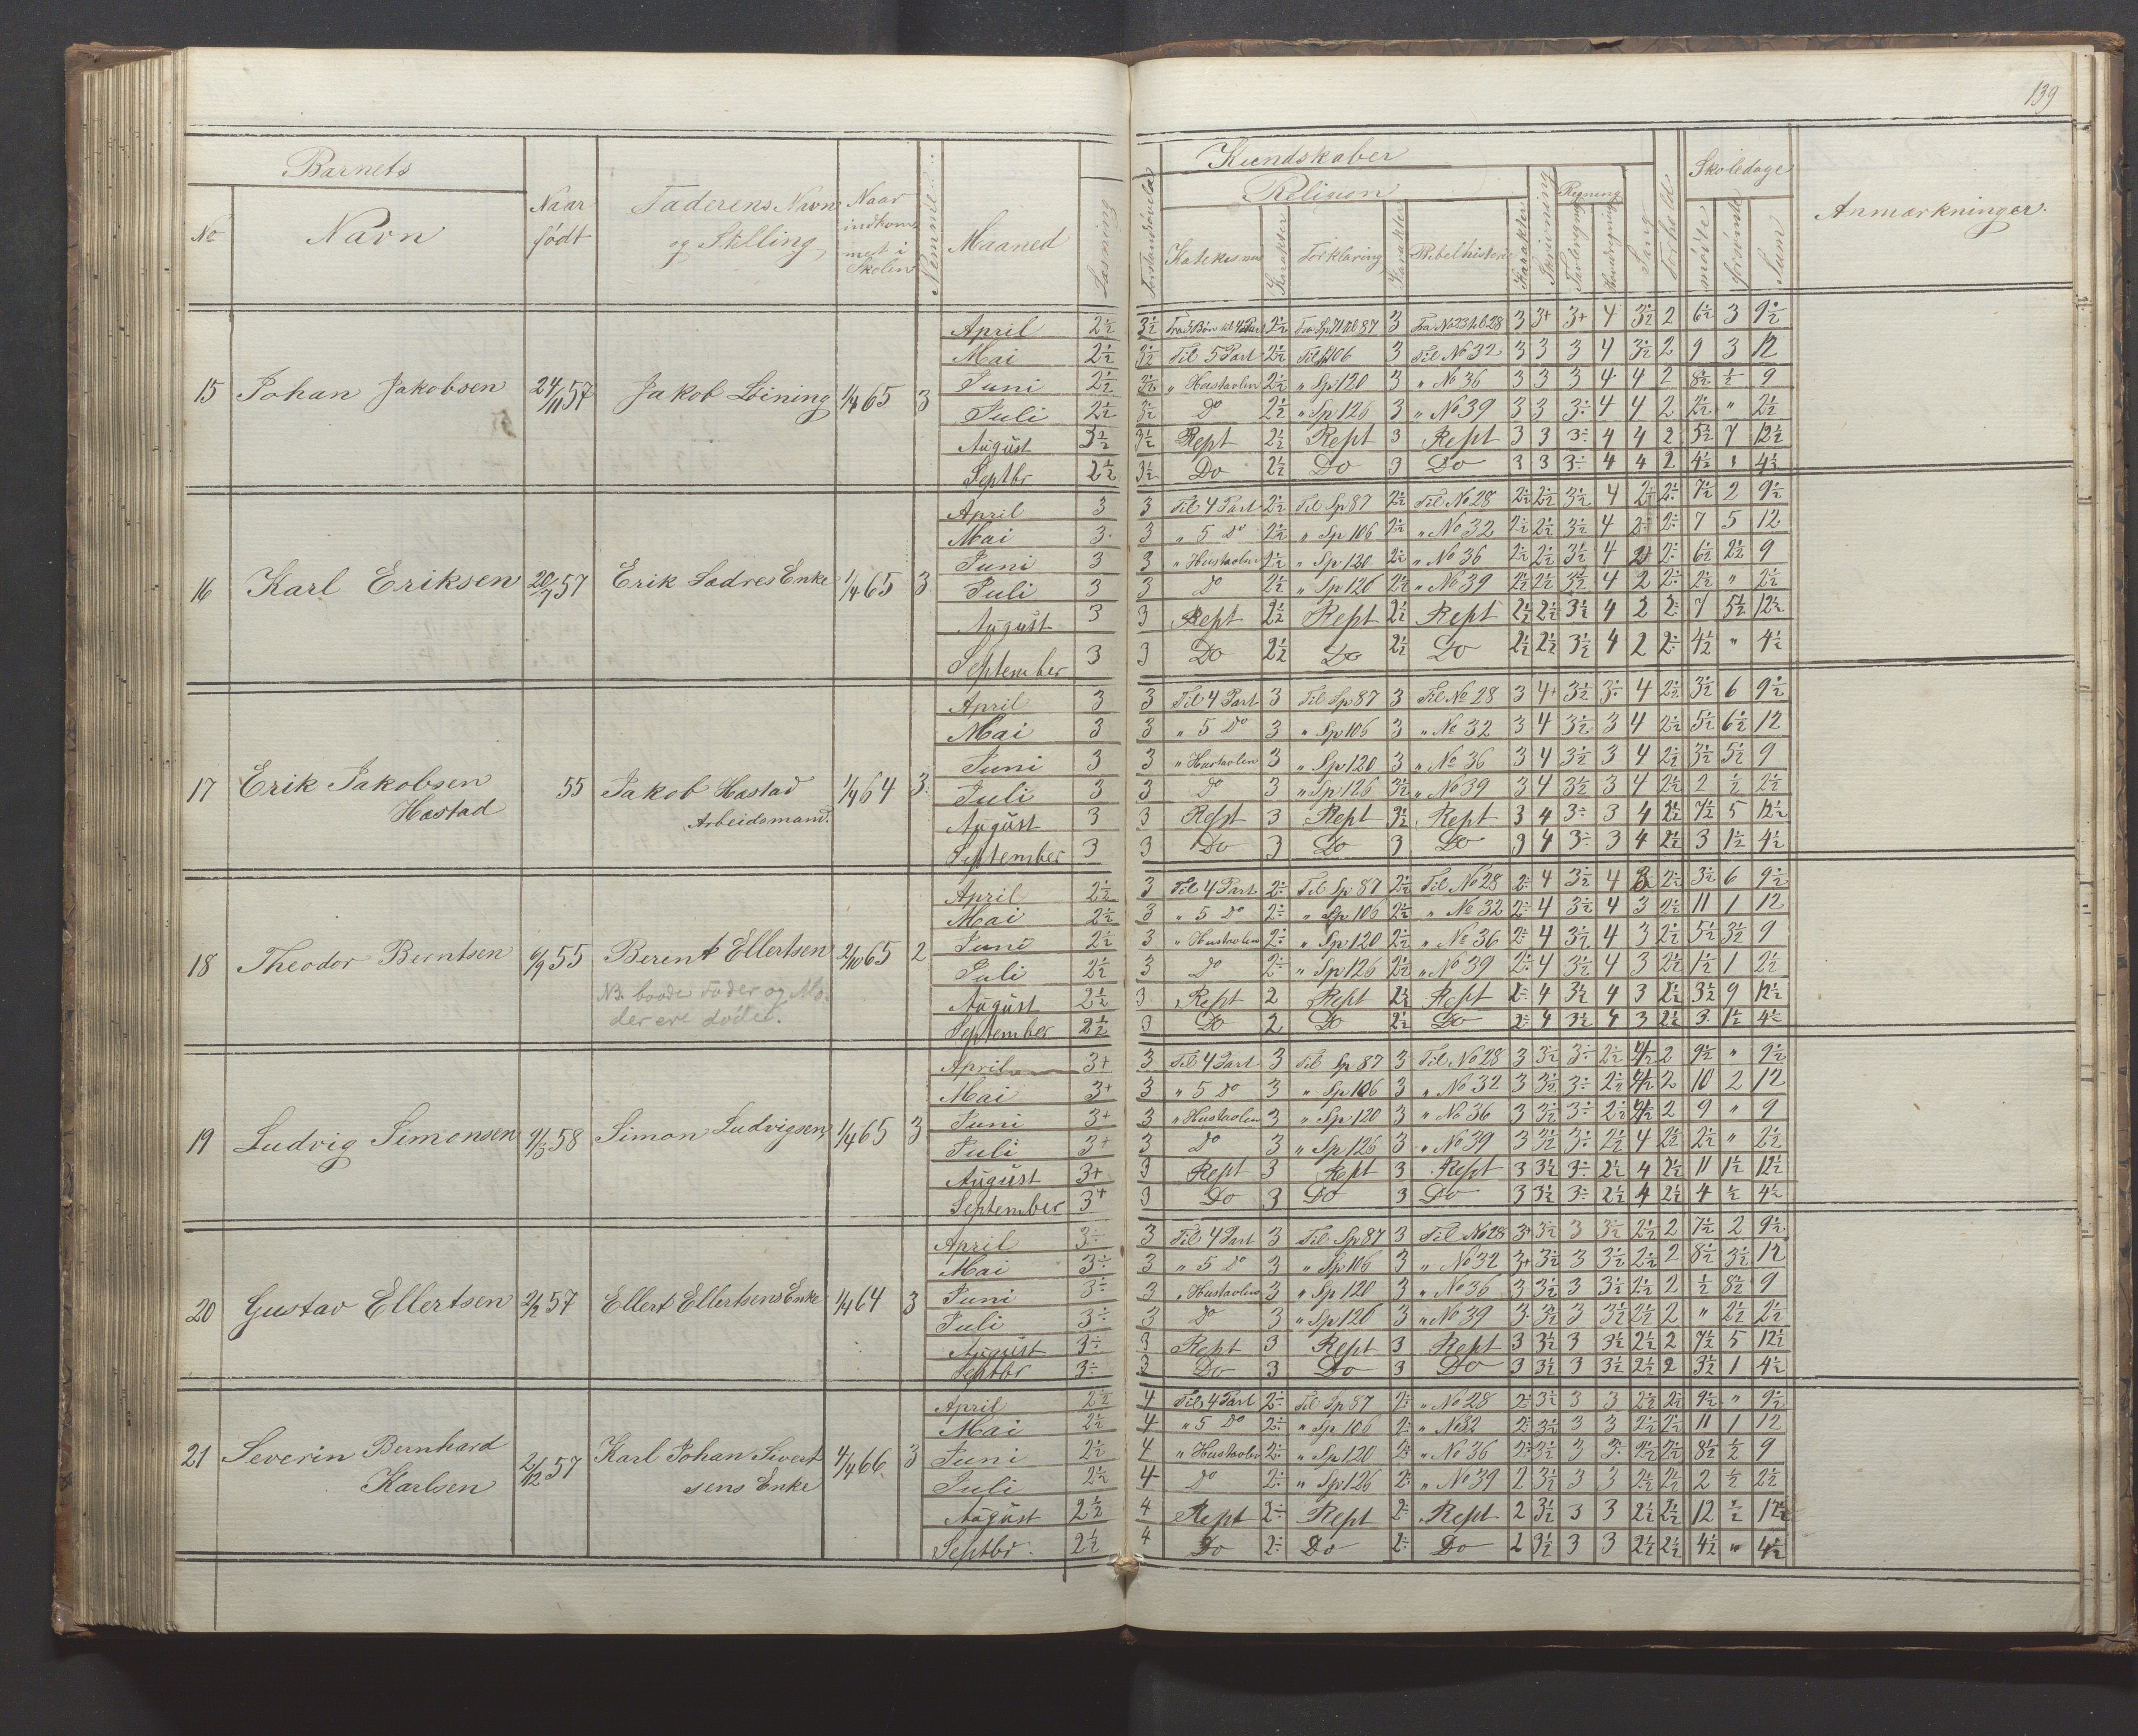 139
Barnets
No
Navn
Naar født
Faderens Navn og Stilling
Naar indkommet i Skolen
Nemme
Maaned
Læsning
Forstandsøvelse
Kundskaber
Religion
Katekismus
Karakter
Forklaring
Karakter
Bibelhistorie
Karakter
Skrivning
Regning
Tavleregning
Hovedregning
Sang
Forhold
Skoledage
mødte
forsømte
Sum
Anmærkninger.
15 Johan Jakobsen 24/11 57 Jakob Leining 1/4 65 3
April 2½ 3½ Fra 3 Bøn til 4 Part 2½ Fra Sp 71 til 87 3 Fra No 23 til 28 3 3+ 3+ 4 3½ 2 6½ 3 9½
Mai 2½ 3½ Til 5 Part 2½ Til Sp 106 3 Til No 32 3 3 3 4 3½ 2 9 3 12
Juni 2½ 3½ " Hustavlen 2½ " Sp 120 3 " No 36 3 3 3 4 4 2 8½ ½ 9
Juli 2½ 3½ Do 2½ " Sp 126 3 " No 39 3 3 3÷ 4 4 2 2½ " 2½
August 3½ 3½ Rept 2½ Rept 3 Rept 3 3 3÷ 4 4 2 5½ 7 12½
Septbr 2½ 3½ Do 2½ Do 3 Do 3 3 3÷ 4 4 2 4½ " 4½
16 Karl Eriksen 20/7 57 Erik Sadres Enke 1/4 65 3
April 3 3 Til 4 Part 2½ Til Sp 87 2½ Til No 28 2½ 2½ 3½ 4 2÷ 2÷ 7½ 2 9½
Mai 3 3 " 5 Do 2½ " Sp 106 2½ " No 32 2½ 2½ 3½ 4 2÷ 2÷ 7 5 12
Juni 3 3 " Hustavlen 2½ " Sp 120 2½ " No 36 2½ 2½ 3½ 4 2+ 2÷ 6½ 2½ 9
Juli 3 3 Do 2½ " Sp 126 2½ " No 39 2½ 2½ 3½ 4 2 2÷ 2½ " 2½
August 3 3 Rept 2½ Rept 2½ Rept 2½ 2½ 3½ 4 2 2÷ 7 5½ 12½
September 3 3 Do 2½ Do 2½ Do 2½ 2½ 3½ 4 2 2÷ 4½ " 4½
17 Erik Jakobsen Hæstad 55 Jakob Hæstad Arbeidsmand. 1/4 64 3
April 3 3 Til 4 Part 3 Til Sp 87 3 Til No 28 3 4+ 3½ 3÷ 4 2½ 3½ 6 9½
Mai 3 3 " 5 Do 3 " Sp 106 3 " No 32 3 4 3½ 3 4 2½ 5½ 6½ 12
Juni 3 3 " Hustavlen 3 " Sp 120 3 " No 36 3 4 3½ 3 4 2½ 3½ 5½ 9
Juli 3 3 Do 3 " Sp 126 3½ " No 39 3 4 3½ 3 4 2½ 2 ½ 2½
August 3 3 Rept 3 Rept 3½ Rept 3 4 3÷ 3 4 2½ 7½ 5 12½
September 3 3 Do 3 Do 3 Do 3 4 3÷ 3 4 2½ 3 1½ 4½
18 Theodor Berntsen 6/9 55 Berent Ellertsen 2/10 65 2
NB. baade Fader og Moder ere døde.
April 2½ 3 Til 4 Part 2÷ Til Sp 87 2½ Til No 28 2÷ 4 3½ 4 3 2½ 3½ 6 9½
Mai 2½ 3 " 5 Do 2÷ " Sp 106 2½ " No 32 2÷ 4 3½ 4 3 2½ 11 1 12
Juni 2½ 3 " Hustavlen 2÷ " Sp 120 2½ " No 36 2÷ 4 3½ 4 3 2½ 5½ 3½ 9
Juli 2½ 3 Do 2÷ " Sp 126 2½ " No 39 2÷ 4 3½ 4 3 2½ 1½ 1 2½
August 2½ 3 Rept 2 Rept 2½ Rept 2÷ 4 3½ 4 3 2½ 3½ 9 12½
September 2½ 3 Do 2 Do 2½ Do 2÷ 4 3½ 4 3 2½ 3 1½ 4½
19 Ludvig Simonsen 9/3 58 Simon Ludvigsen 1/4 65 3
April 3+ 3 Til 4 Part 3 Til Sp 87 3 Til No 28 3 3½ 3÷ 2½ 4½ 2 9½ " 9½
Mai 3+ 3 " 5 Do 3 " Sp 106 3 " No 32 3 3½ 3÷ 2½ 4½ 2 10 2 12
Juni 3+ 3 " Hustavlen 3 " Sp 120 3 " No 36 3 3½ 3÷ 2½ 4½ 2 9 " 9
Juli 3+ 3 Do 3 " Sp 126 3 " No 39 3 3½ 3÷ 2½ 4 2½ 2½ " 2½
August 3+ 3 Rept 3 Rept 3 Rept 3 3½ 3÷ 2½ 4 2½ 11 1½ 12½
September 3+ 3 Do 3 Do 3 Do 3 3½ 3÷ 2½ 4 2½ 4 ½ 4½
20 Gustav Ellertsen 2/2 57 Ellert Ellertsens Enke 1/4 64 3
April 3÷ 3 Til 4 Part 3 Til Sp 87 3 Til No 28 3+ 3½ 3 3½ 2½ 2 7½ 2 9½
Mai 3÷ 3 " 5 Do 3 " Sp 106 3 " No 32 3+ 3½ 3 3½ 2½ 2 8½ 3½ 12
Juni 3÷ 3 " Hustavlen 3 " Sp 120 3 " No 36 3 3½ 3 3½ 2½ 2 ½ 8½ 9
Juli 3÷ 3 Do 3 " Sp 126 3 " No 39 3 3½ 3 3½ 2½ 2 " 2½ 2½
August 3÷ 3 Rept 3 Rept 3 Rept 3 3½ 3 3½ 2½ 2 7½ 5 12½
Septbr 3÷ 3 Do 3 Do 3 Do 3 3½ 3 3½ 2½ 2 3½ 1 4½
21 Severin Bernhard Karlsen 2/12 57 Karl Johan Sivertsens Enke 4/4 66 3
April 2½ 4 Til 4 Part 2÷ Til Sp 87 2÷ " No 28 2÷ 3½ 3 3 2½ 2½ 9½ " 9½
Mai 2½ 4 " 5 Do 2÷ " Sp 106 2÷ " No 32 2÷ 3½ 3 3 2½ 2½ 11 1 12
Juni 2½ 4 " Hustavlen 2÷ " Sp 120 2÷ " No 36 2÷ 3½ 3 3 2½ 2½ 8½ ½ 9
Juli 2½ 4 Do 2÷ " Sp 126 2÷ " No 39 2 3½ 3 3 2½ 2½ 2 ½ 2½
August 2½ 4 Rept 2÷ Rept 2÷ Rept 2 3½ 3 3 2½ 2½ 12 ½ 12½
Septbr. 2½ 4 Do 2÷ Do 2÷ Do 2 3½ 3 3 2½ 2½ 4½ " 4½